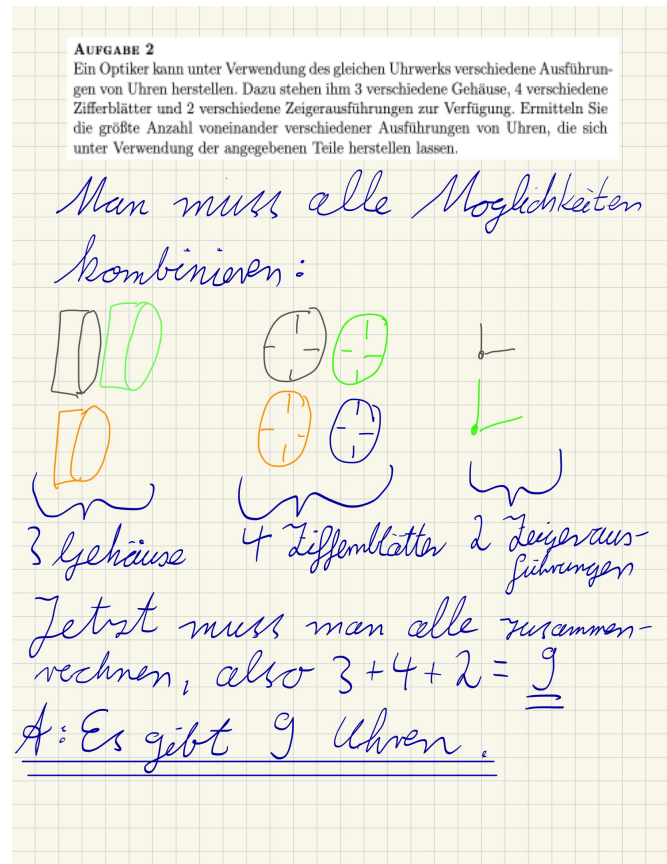 AUFGABE 2
Ein Optiker kann unter Verwendung des gleichen Uhrwerks verschiedene Ausführun-
gen von Uhren herstellen. Dazu stehen ihm 3 verschiedene Gehäuse, 4 verschiedene
Zifferblätter und 2 verschiedene Zeigerausführungen zur Verfügung. Ermitteln Sie
die größte Anzahl voneinander verschiedener Ausführungen von Uhren, die sich
unter Verwendung der angegebenen Teile herstellen lassen.
Man muss alle Moglichkeiten
kombinieren:
3 Gehäuse 4 Ziffernblätter 2 Zeigeraus-
führungen
Jetzt muss man alle zusammen-
rechnen, also 3+4+2 = 9
A: Es gibt 9 Uhren.